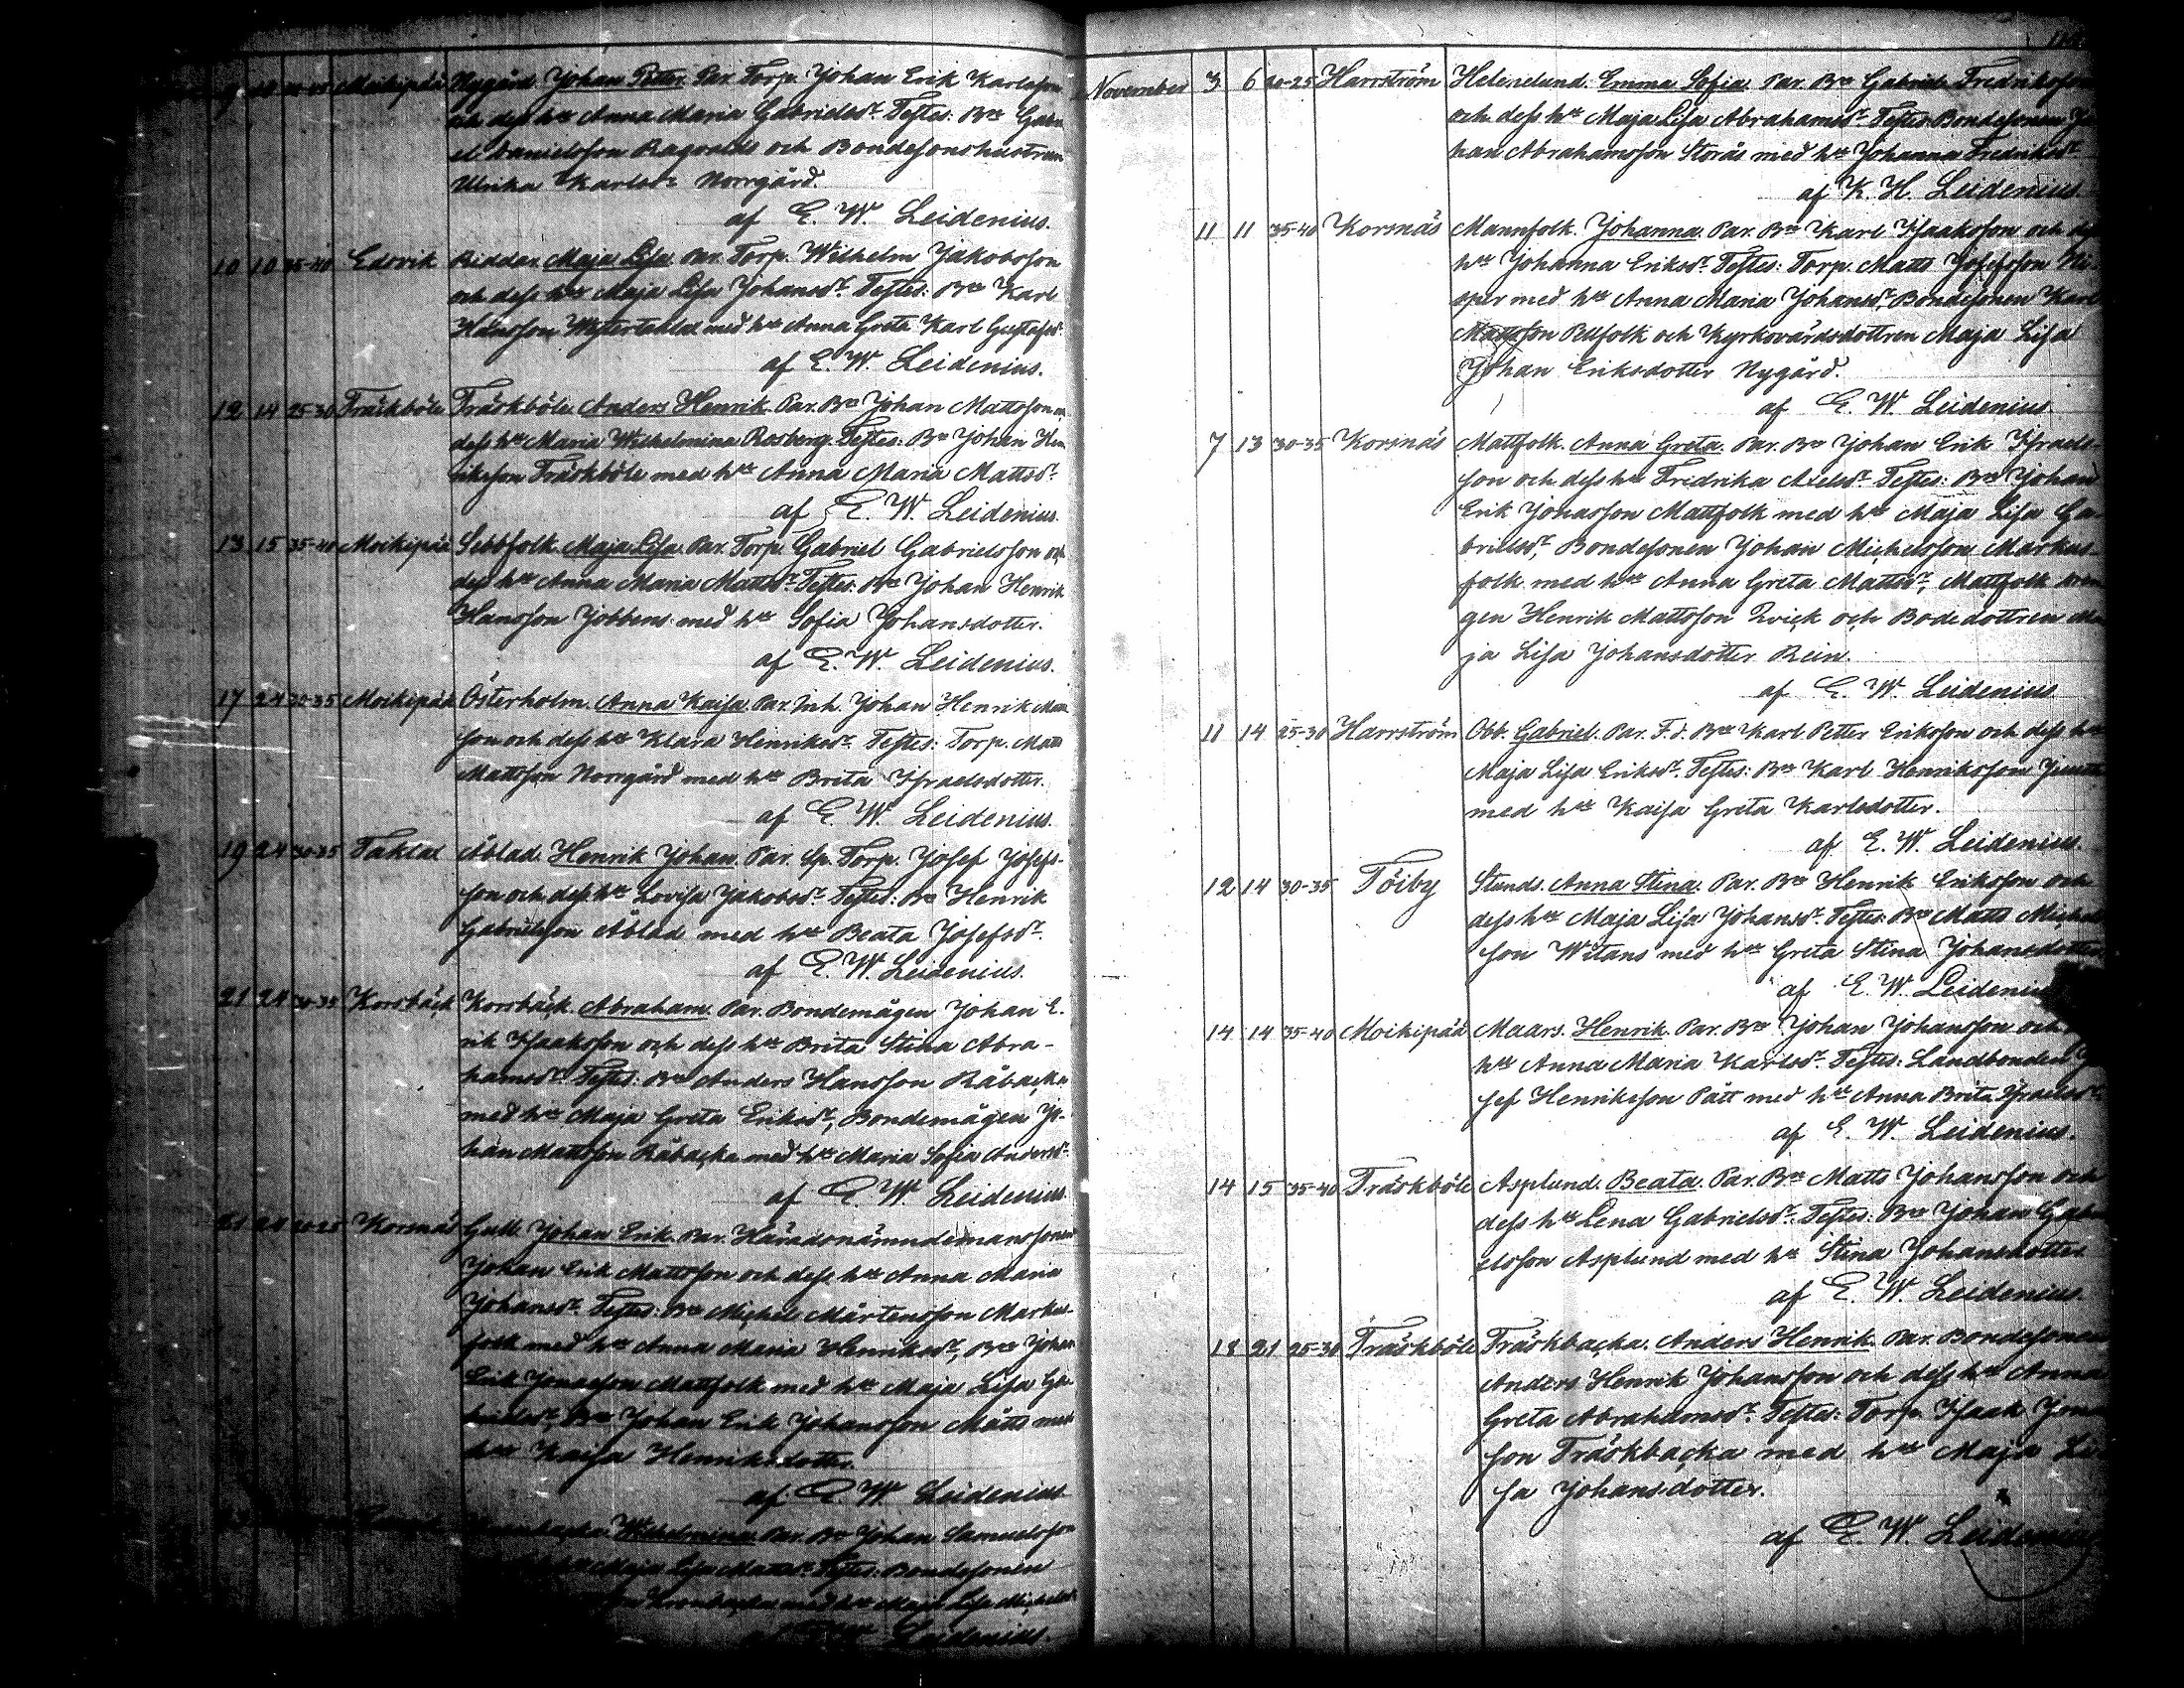 Moikipää Nygård. Johan Petter. Par. Torp. Johan Erik Karlsson
och dess hu Anna Maria Gabrielsdr. Testes: Bn Gabri
el Danielsson Ragvalds och Bondesonshustrun
Ulrika Karlsdr Norrgård.
af E. W. Leidenius.
10 10 35-40 Edsvik Riddar. Maja Lisa. Par. Torp. Wilhelm Jakobsson
och dess hu Maja Lisa Johansdr. Testes: Bn Karl
Hansson Westertaklax med hu Anna Greta Karl Gustafsdr.
af E. W. Leidenius.
12 14 25-30 Träskböle Träskböle. Anders Henrik. Par. Bn Johan Mattsson
dess hu Maria Wilhelmina Rosberg. Testes: Bn Johan Hen
riksson Träskböle med hu Anna Maria Mattsdr.
af E. W. Leidenius.
13 15 35-40 Moikipää Sebbfolk. Maja Lisa. Par. Torp. Gabriel Gabrielsson och
dess hu Anna Maria Mattsdr. Testes: Bn Johan Henrik
Hansson Jobbens med hu Sofia Johansdotter.
af E. W. Leidenius.
17 24 30-35 Moikipää Österholm. Anna Kaisa. Par. Inh. Johan Henrik
son och dess hu Klara Henriksdr. Testes: Torp. Matts
Mattsson Norrgård med hu Brita Israelsdotter.
af E. W. Leidenius.
19 24 30-35 Taklax Åblad. Henrik Johan. Par. Sp. Torp. Josef Josefs-
son och dess hu Lovisa Jakobsdr. Testes: Bn Henrik
Gabrielsson Åblad med hu Beata Josefsdr.
af E. W. Leidenius.
21 24 30-35 Korsbäck Korsbäck. Abraham. Par. Bondemågen Johan E-
rik Isaaksson och dess hu Brita Stina Abra-
hamsdr. Testes: Bn Anders Hansson Råbacka
med hu Maja Greta Eriksdr, Bondemågen Jo-
han Mattsson Råbacka med hu Maria Sofia Andersdr.
af E. W. Leidenius.
21 24 20-25 Korsnäs Gull. Johan Erik. Par. Häradsnämndemanssonen
Johan Erik Mattsson och dess hu Anna Maria
Johansdr. Testes: Bn Michel Mårtensson Markus-
folk med hu Anna Maria Henriksdr, Bn Johan
Erik Jonasson Mattfolk med hu Maja Lisa Ga-
brielsdr, Bn Johan Erik Johansson Måtts med
hu Kaisa Henriksdotter.
af E. W. Leidenius
Wilhelmina. Par. Bn Johan Samuelsson
Maja Lisa Mattsdr. Testes: Bondesonen
med hu Maja Lisa Michelsdr
Leidenius.
November 3 6 20-25 Harrström Helenelund. Emma Sofia. Par. Bn Gabriel Fredriksson
och dess hu Maja Lisa Abrahamsdr. Testes: Bondesonen Jo
han Abrahamsson Storås med hu Johanna Fredriksdr.
af K. H. Leidenius.
11 11 35-40 Korsnäs Mannfolk. Johanna. Par. Bn Karl Isaaksson och dess
hu Johanna Eriksdr. Testes: Torp. Matts Josefsson
med hu Anna Maria Johansdr, Bondesonen Karl
Mattsson Pellfolk och Kyrkovärdsdottren Maja Lisa
Johan Eriksdotter Nygård.
af E. W. Leidenius
7 13 30-35 Korsnäs Mattfolk. Anna Greta. Par. Bn Johan Erik Israels-
son och dess hu Fredrika Axelsdr. Testes: Bn Johan
Erik Jonasson Mattfolk med hu Maja Lisa Ga-
brielsdr, Bondesonen Johan Michelsson Markus-
folk med hu Anna Greta Mattsdr, Mattfolk dren
gen Henrik Mattsson Qvick och Bodedottren Ma
ja Lisa Johansdotter Rein.
af E. W. Leidenius
11 14 25-30 Harrström Obb. Gabriel. Par. F.d. Bn Karl Petter Eriksson och dess hu
Maja Lisa Eriksdr. Testes: Bn Karl Henriksson
med hu Kaisa Greta Karlsdotter.
af E. W. Leidenius.
12 14 30-35 Töiby Stunds. Anna Stina. Par. Bn Henrik Eriksson och
dess hu Maja Lisa Johansdr. Testes: Bn Matts Michels
son Witans med hu Greta Stina Johansdotter
af E. W. Leidenius
14 14 35-40 Moikipää Maars. Henrik. Par. Bn Johan Johansson och
hu Anna Maria Karlsdr. Testes: Landbonden Jo
sef Henriksson Pått med hu Anna Brita Israelsdr.
af E. W. Leidenius.
14 15 35-40 Träskböle Asplund. Beata. Par. Bn Matts Johansson och
dess hu Lena Gabrielsdr. Testes: Bn Johan Gabri
elsson Asplund med hu Stina Johansdotter
af E. W. Leidenius.
18 21 25-30 Träskböle Träskbacka. Anders Henrik. Par. Bondesonen
Anders Henrik Johansson och dess hu Anna
Greta Abrahamsdr. Testes: Torp. Isaak Jonas
son Träskbacka med hu Maja Li-
sa Johansdotter.
af E. W. Leidenius